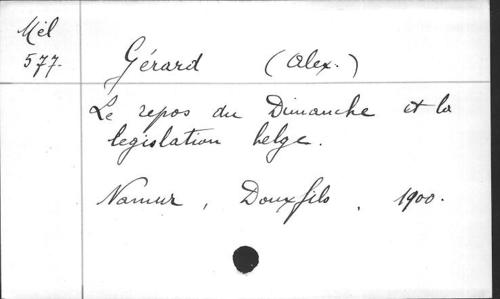 Mél
577.
Gérard (Alex.)
Le repos du Dimanche et la
legislation belge.
Namur, Douxfils, 1900.